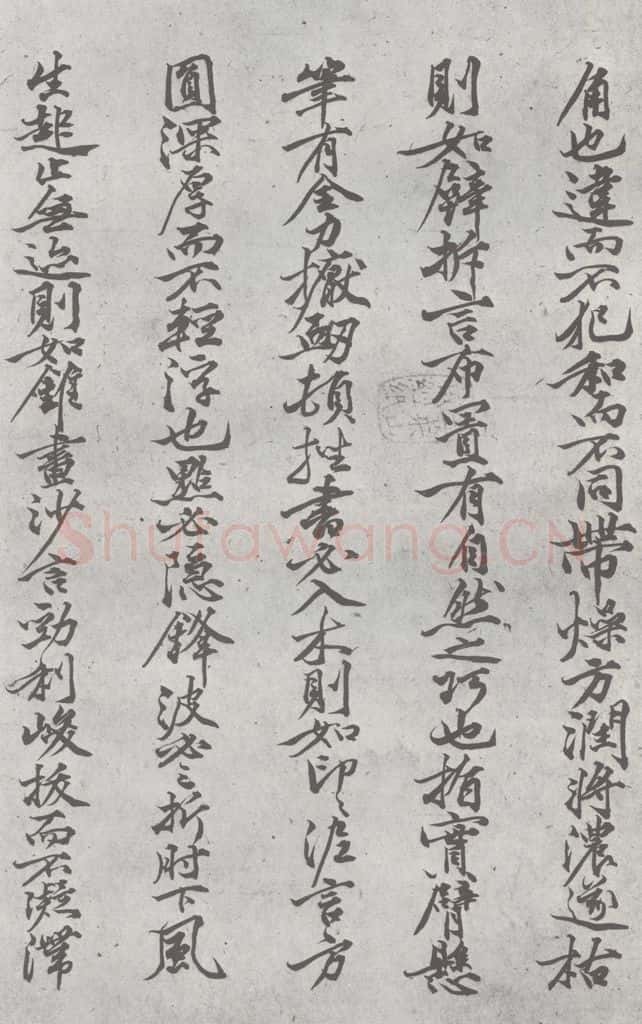 角也違而不犯和而不同帶燥方潤將濃遂枯
則如壁拆言布置有自然之巧也指實臂懸
筆有全力擫壓頓挫書必入木則如印印泥言方
圓深厚而不輕浮也點必隱鋒波必三折肘下風
生起止無迹則如錐畫沙言勁利峻拔而不凝滯
Shufawang.CN